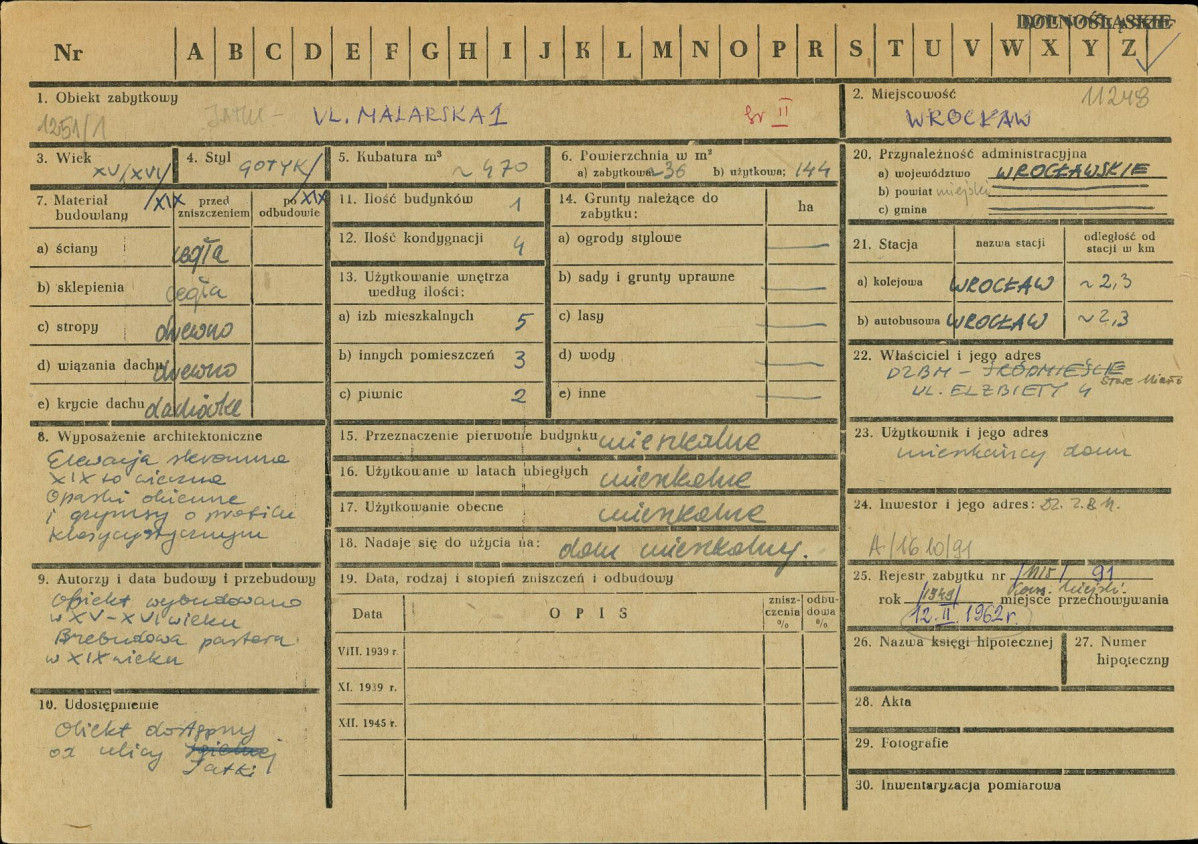 DOLNOŚLĄSKIE
Nr A B C D E F G H I J K L M N O P R S T U V W X Y Z
1. Obiekt zabytkowy
1251/1
UL. MALARSKA 1
gr II
2. Miejscowość
11248
WROCŁAW
3. Wiek
XV/XVI/XIX
4. Styl
GOTYK/XIX
5. Kubatura m³
~ 470
6. Powierzchnia w m²
a) zabytkowa ~36 b) użytkowa; 144
7. Materiał budowlany
przed zniszczeniem
po odbudowie
a) ściany cegła
b) sklepienia cegła
c) stropy drewno
d) wiązania dachu drewno
e) krycie dachu dachówka
8. Wyposażenie architektoniczne
Elewacja skromna
XIX to wieczna
Opaski okienne
i gzymsy o profilu
klasycystycznym
9. Autorzy i data budowy i przebudowy
Obiekt wybudowano
w XV-XVI wieku
w XIX wieku
10. Udostępnienie
Obiekt dostępny
od ulicy
Jatki
11. Ilość budynków 1
12. Ilość kondygnacji 4
13. Użytkowanie wnętrza według ilości:
a) izb mieszkalnych 5
b) innych pomieszczeń 3
c) piwnic 2
14. Grunty należące do zabytku: ha
a) ogrody stylowe —
b) sady i grunty uprawne —
c) lasy —
d) wody —
e) inne —
15. Przeznaczenie pierwotne budynku mieszkalne
16. Użytkowanie w latach ubiegłych mieszkalne
17. Użytkowanie obecne mieszkalne
18. Nadaje się do użycia na: dom mieszkalny.
19. Data, rodzaj i stopień zniszczeń i odbudowy
Data OPIS znisz-czenia % odbu-dowa %
VIII. 1939 r.
XI. 1939 r.
XII. 1945 r.
20. Przynależność administracyjna
a) województwo WROCŁAWSKIE
b) powiat miejski
c) gmina
21. Stacja nazwa stacji odległość od stacji w km
a) kolejowa WROCŁAW ~ 2,3
b) autobusowa WROCŁAW ~ 2,3
22. Właściciel i jego adres
DZBM – ŚRÓDMIEŚCIE
Stare Miasto
UL. ELŻBIETY 4
23. Użytkownik i jego adres
mieszkańcy domu
24. Inwestor i jego adres: Dz. Z.B.M.
A/1610/91
25. Rejestr zabytku nr 91
rok /1949/ miejsce przechowywania
Kons. Miejski.
12. II. 1962 r.
26. Nazwa księgi hipotecznej
27. Numer hipoteczny
28. Akta
29. Fotografie
30. Inwentaryzacja pomiarowa